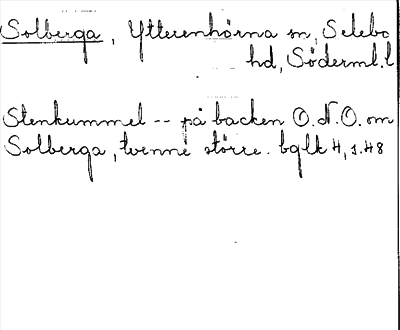 Solberga, Ytterenhörna sn, Selebo
hd, Söderml.l
Stenkummel -- på backen O.N.O. om
Solberga, tvenne större. bglk 4, s. 48